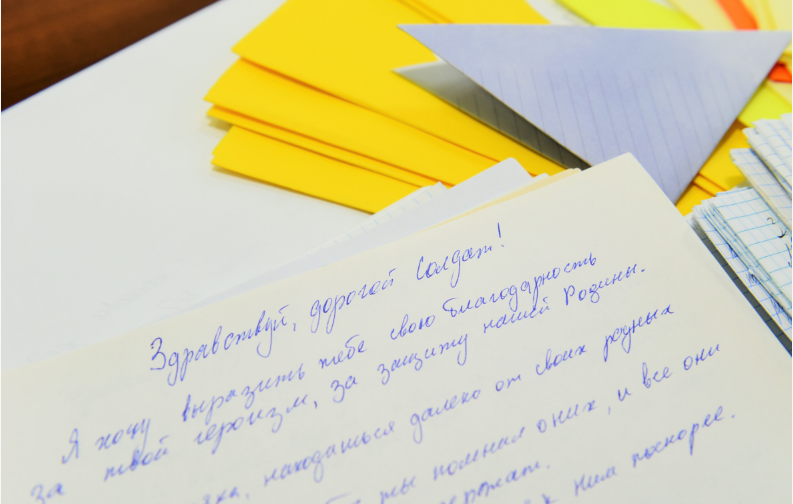 Здравствуй, дорогой Солдат!
Я хочу выразить тебе свою благодарность
за твой героизм, за защиту нашей Родины.
находиться далеко от своих родных
ты помнил о них, и все они
к ним поскорее.